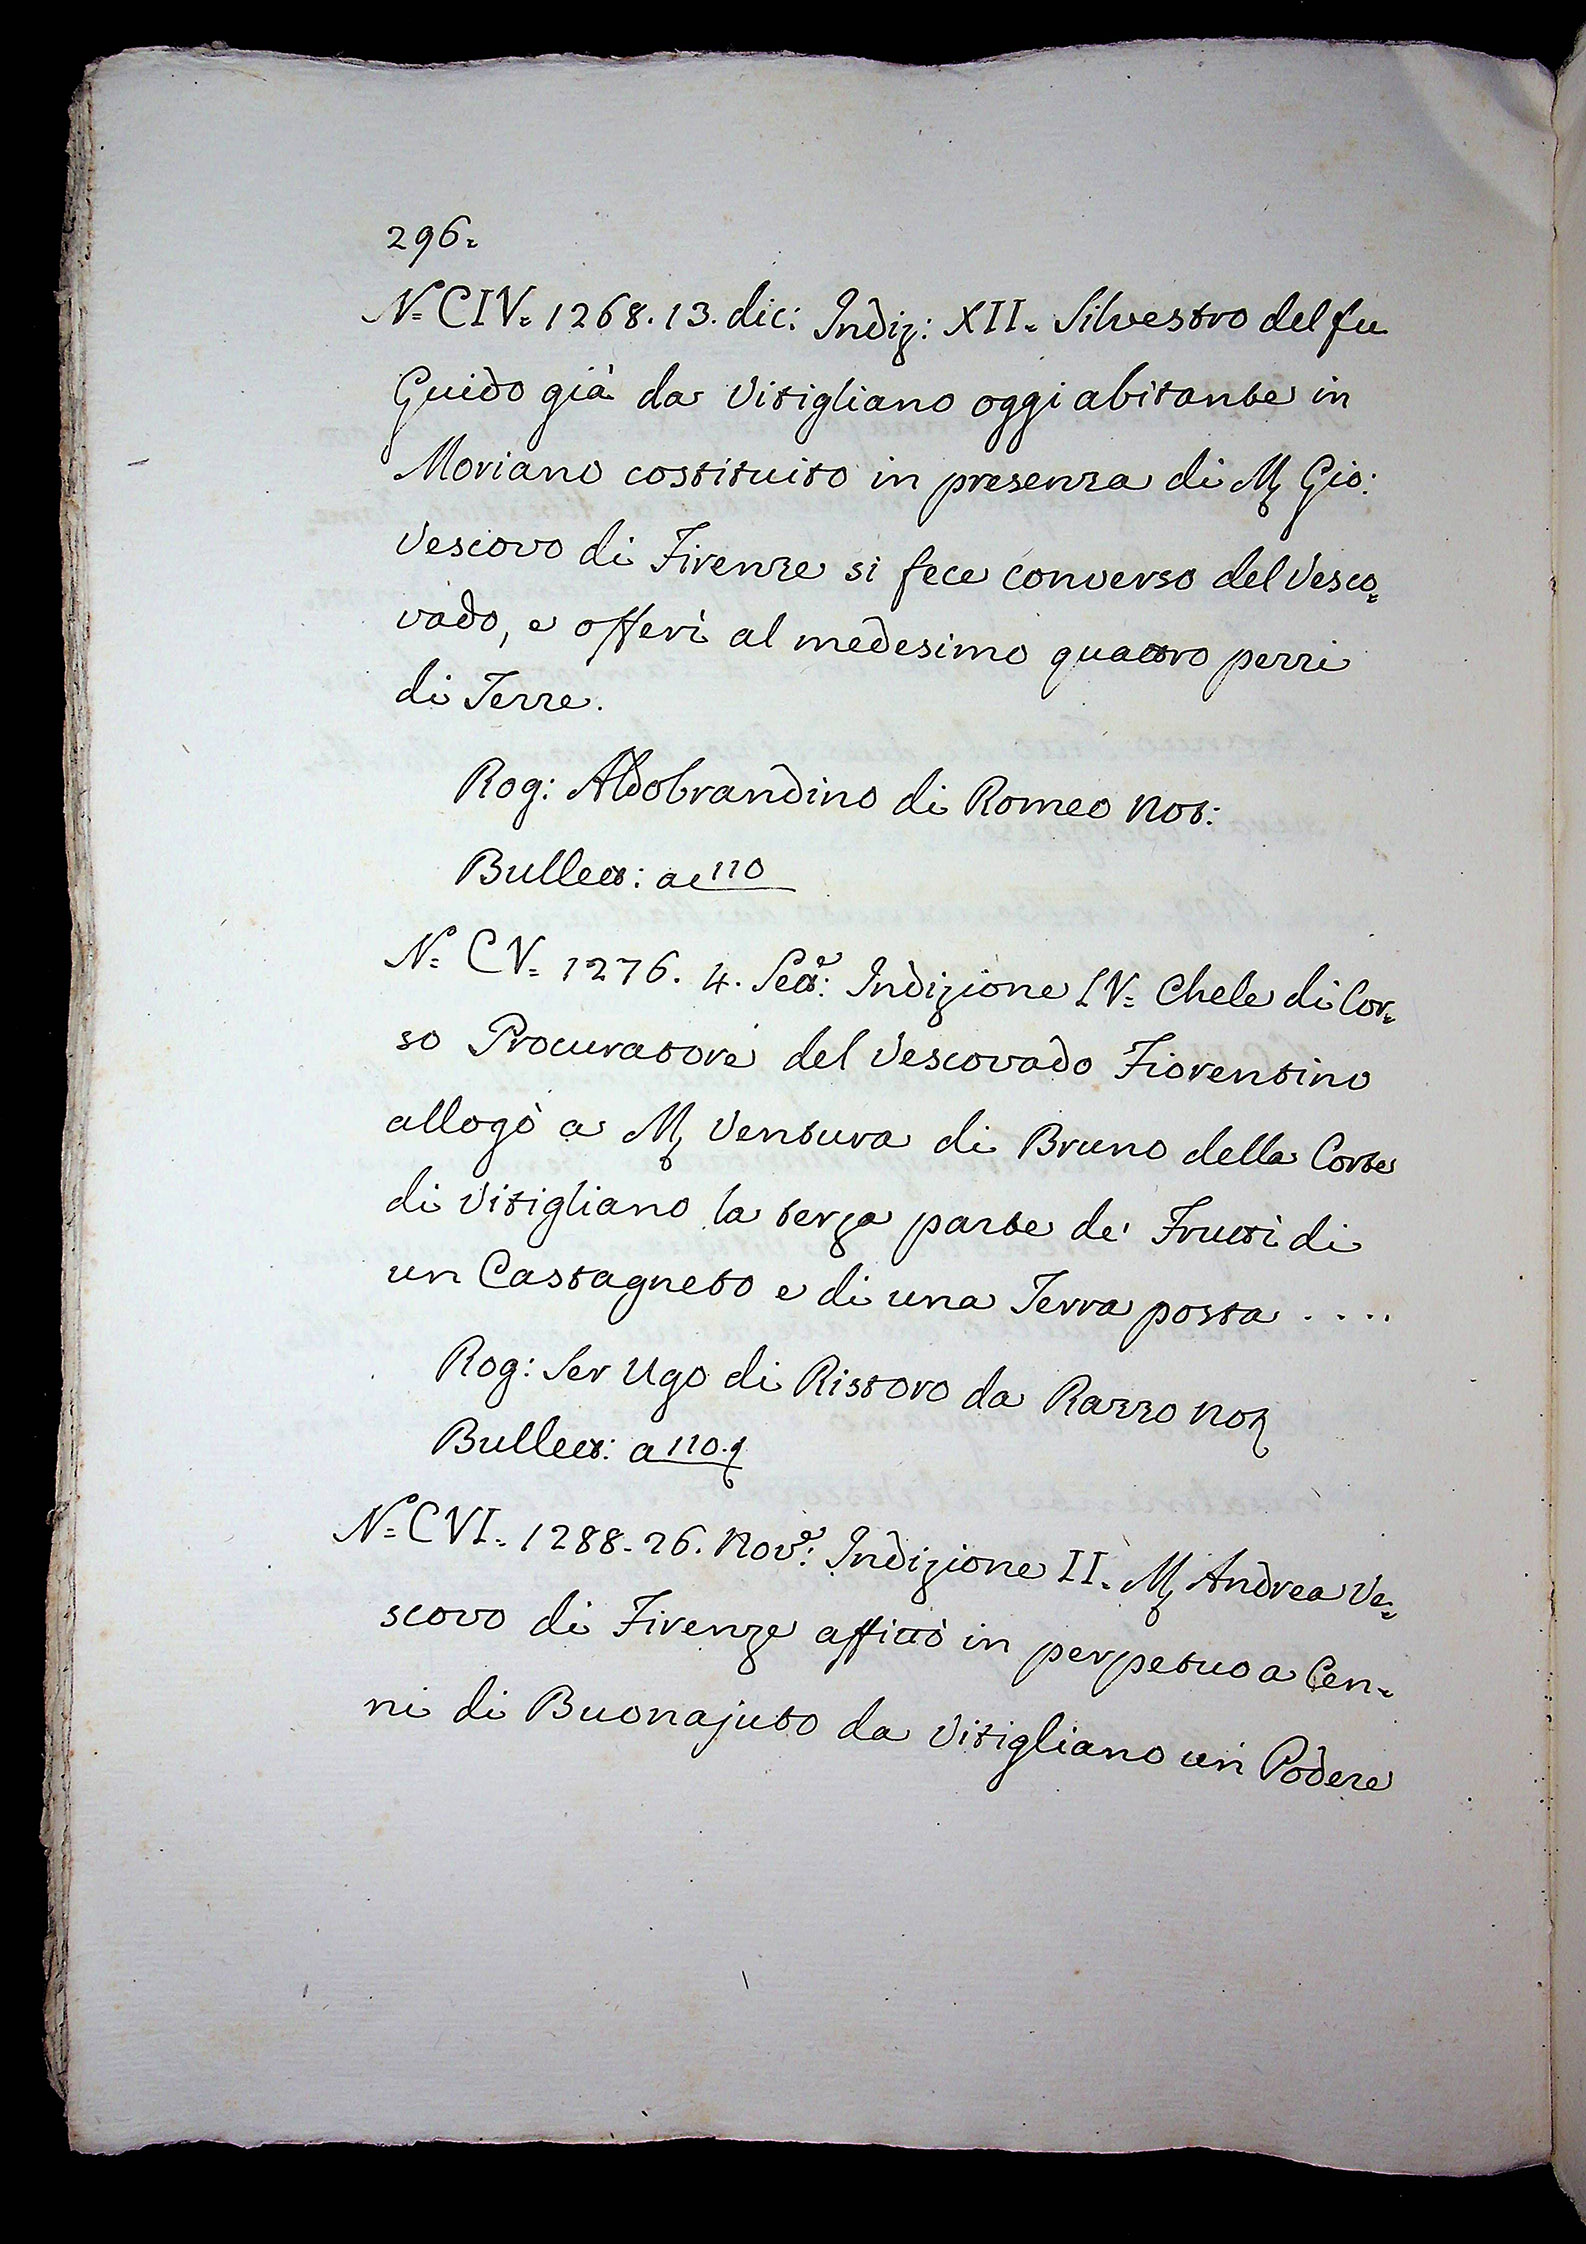 296=
N.= CIV= 1268. 13. dic: Indiz: XII= Silvestro del fu
Guido già da Vitigliano oggi abitante in
Moriano costituito in presenza di M. Gio:
Vescovo di Firenze si fece converso del Vesco=
vado, e offerì al medesimo quattro pezzi
di Terre.
Rog: Aldobrandino di Romeo Not:
Bullett: a 110
N.= CV= 1276. 4. Sett.e: Indizione IV= Chele di Cor=
so Procuratore del Vescovado Fiorentino
allogò a M. Ventura di Bruno della Corte
di Vitigliano la terza parte de' Frutti di
un Castagneto e di una Terra posta . . . .
Rog: Ser Ugo di Ristoro da Razzo Not
Bullett: a 110.
N.= CVI= 1288. 26. Nov.e: Indizione II= M. Andrea Ve=
scovo di Firenze affittò in perpetuo a Cen=
ni di Buonajuto da Vitigliano un Podere